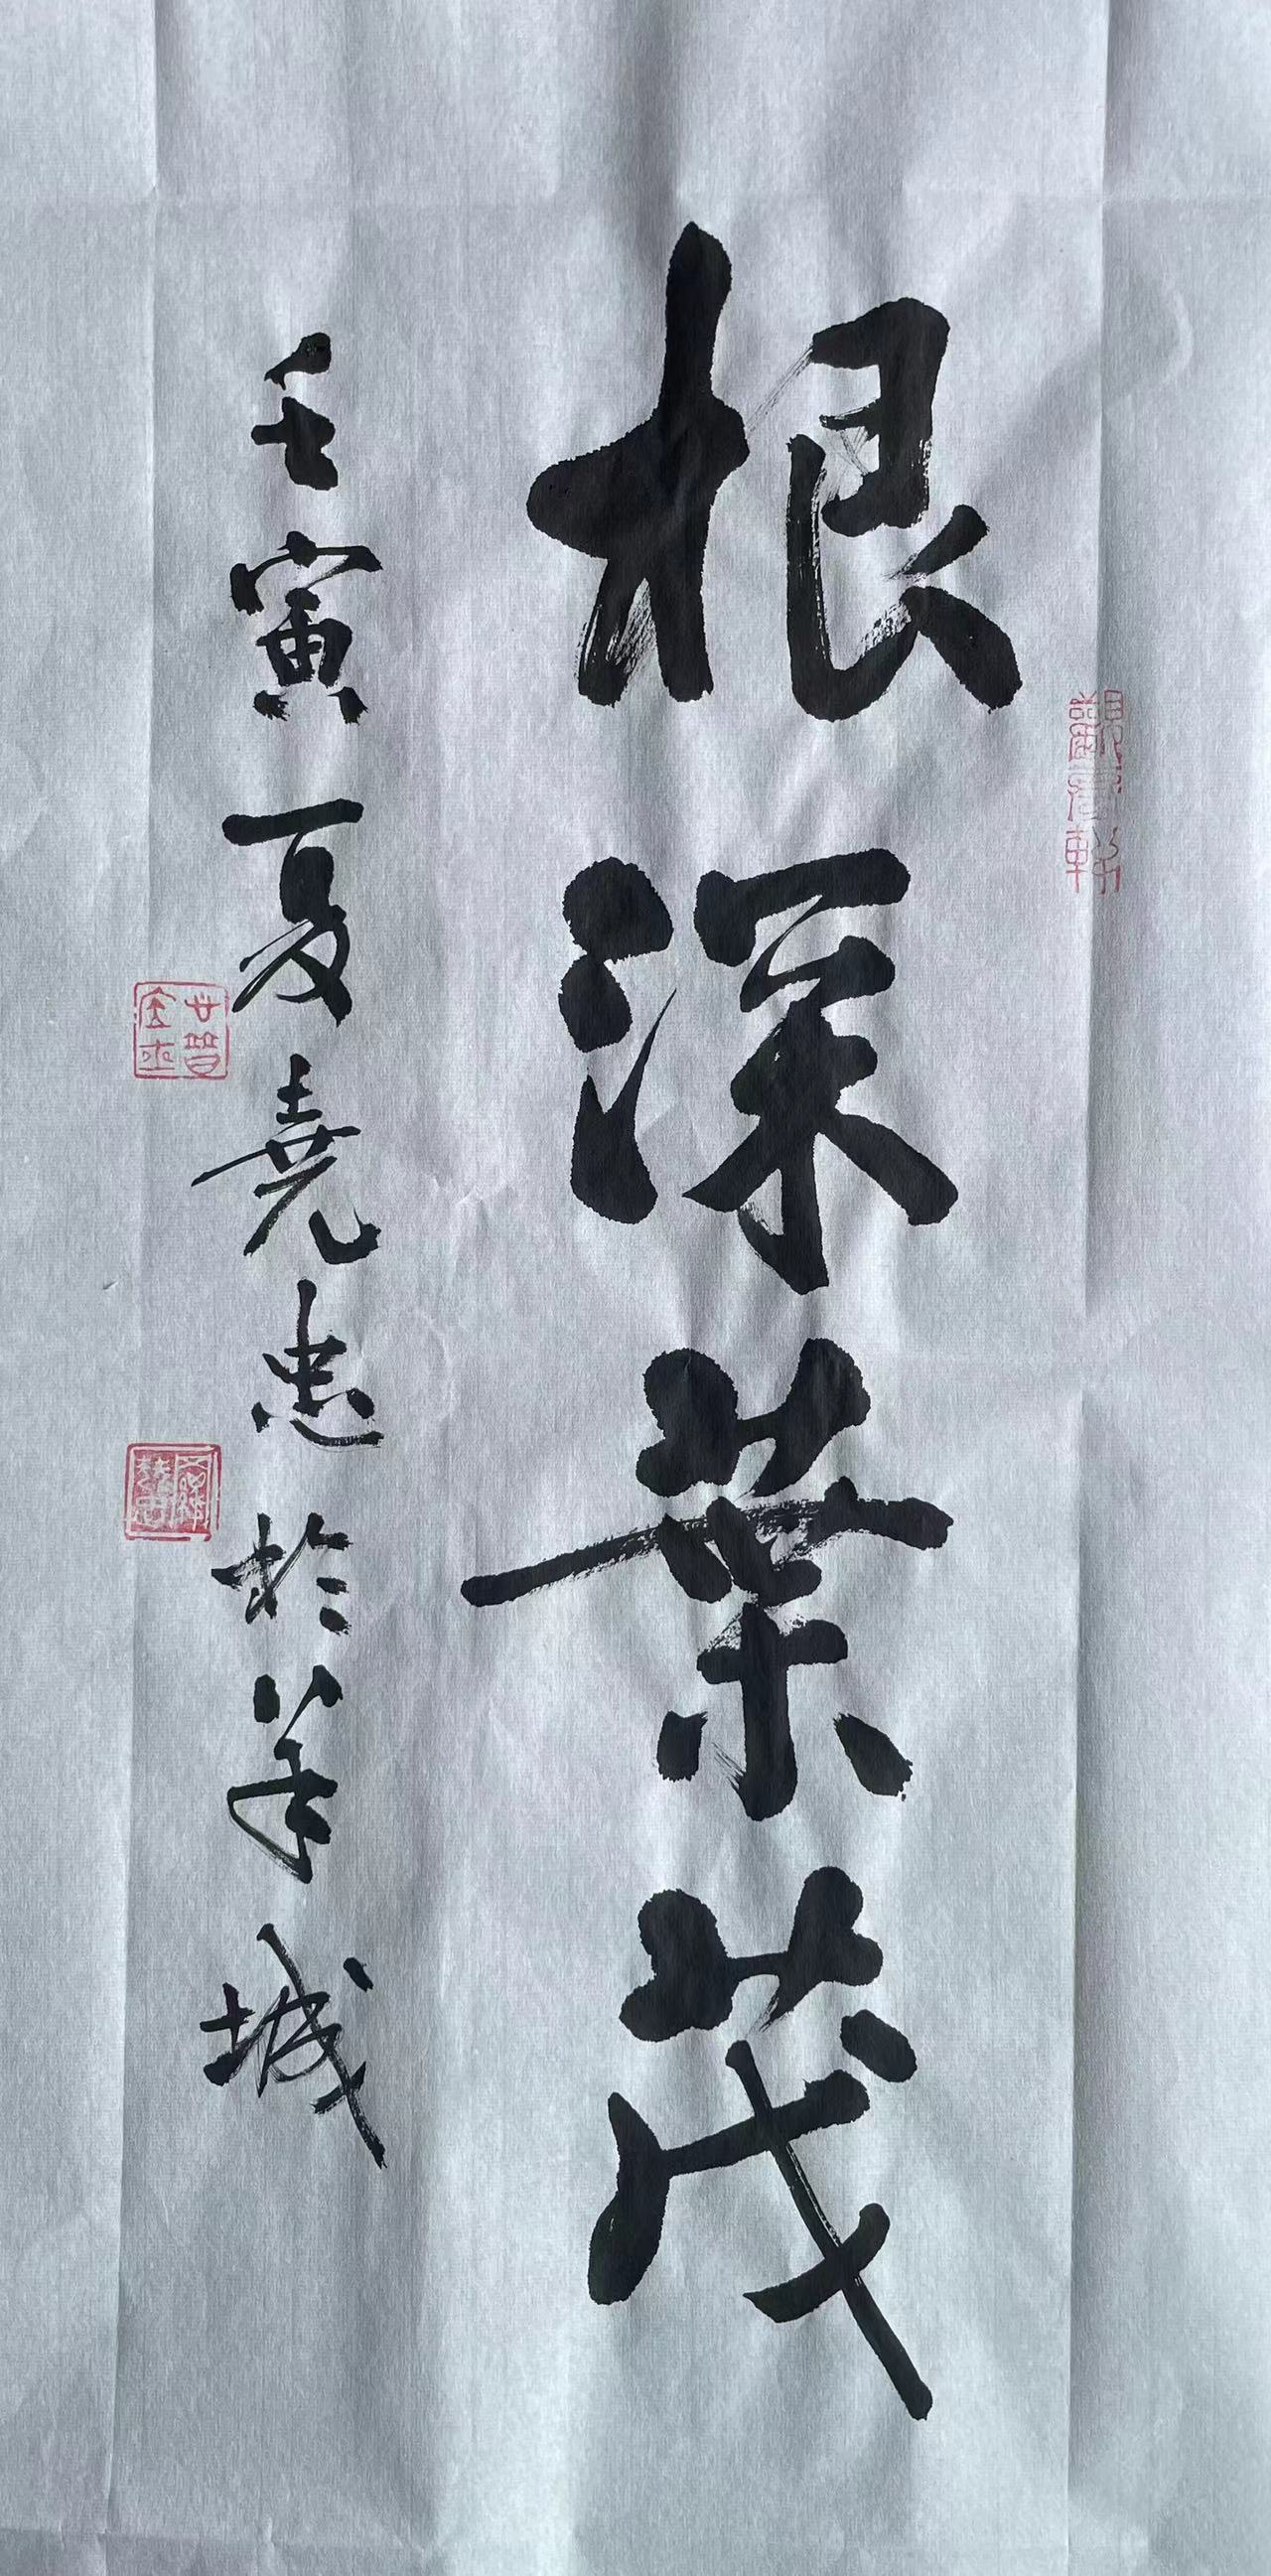 根深葉茂
壬寅夏堯忠於羊城